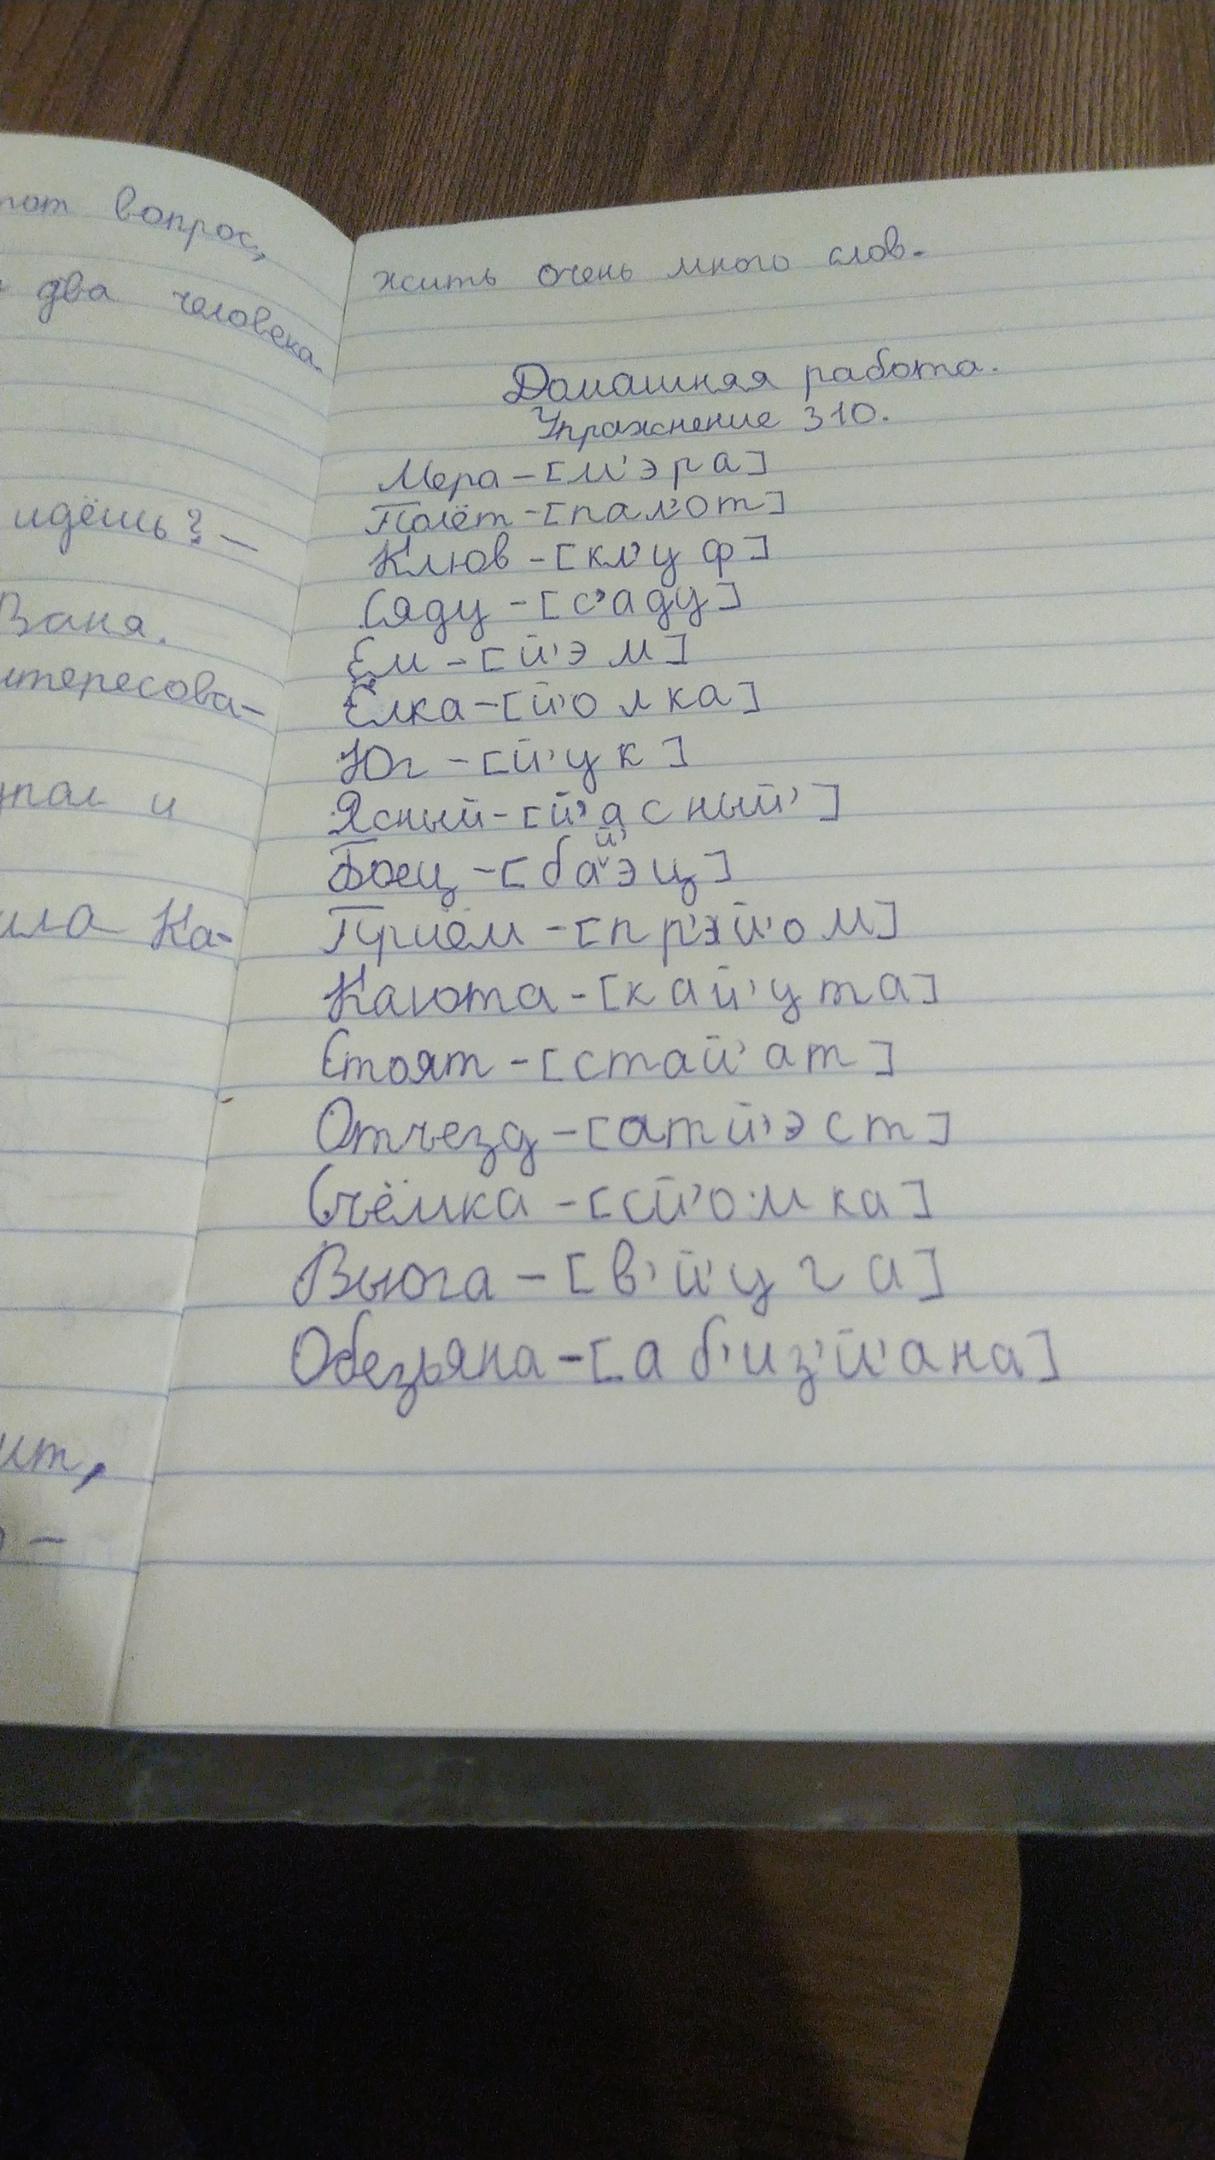 тот вопрос,
два человека.
идёшь? —
Ваня.
интересова-
упал и
ила Ка-
ит,
жить очень много слов.
Домашняя работа.
Упражнение 310.
Мера - [м'эра]
Полёт - [пал'от]
Клюв - [кл'уф]
Сяду - [с'аду]
Ем - [й'эм]
Ёлка - [й'олка]
Юг - [й'ук]
Ясный - [й'асный']
Боец - [бай'эц]
Приём - [пр'эй'ом]
Каюта - [кай'ута]
Стоят - [стай'ат]
Отъезд - [атй'эст]
Съёмка - [сй'омка]
Вьюга - [в'й'уга]
Обезьяна - [аб'из'й'ана]